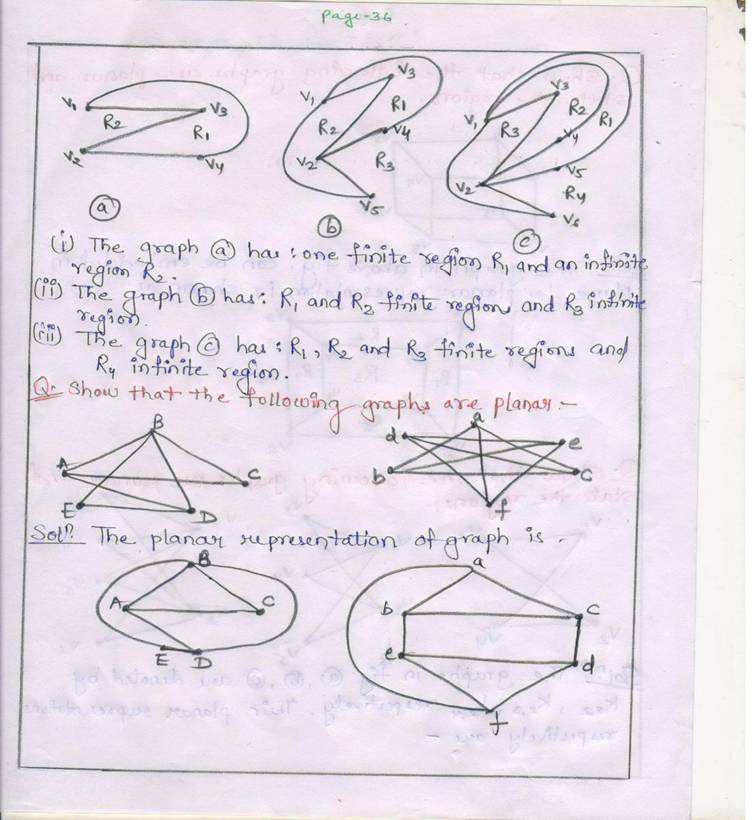 Page-36
V1 V3 R2 R1 V2 V4
V3 V1 R1 R2 V4 V2 R3 V5
V3 R2 V1 R3 R1 V4 V5 V2 R4 V6
a
b
c
(i) The graph (a) has : one finite region R1 and an infinite
region R2.
(ii) The graph (b) has : R1 and R2 finite regions and R3 infinite
region.
(iii) The graph (c) has : R1, R2 and R3 finite regions and
R4 infinite region.
Q. Show that the following graphs are planar :-
B A C E D
a d e b c f
Solⁿ. The planar representation of graph is .
B A C E D
a b c e d f